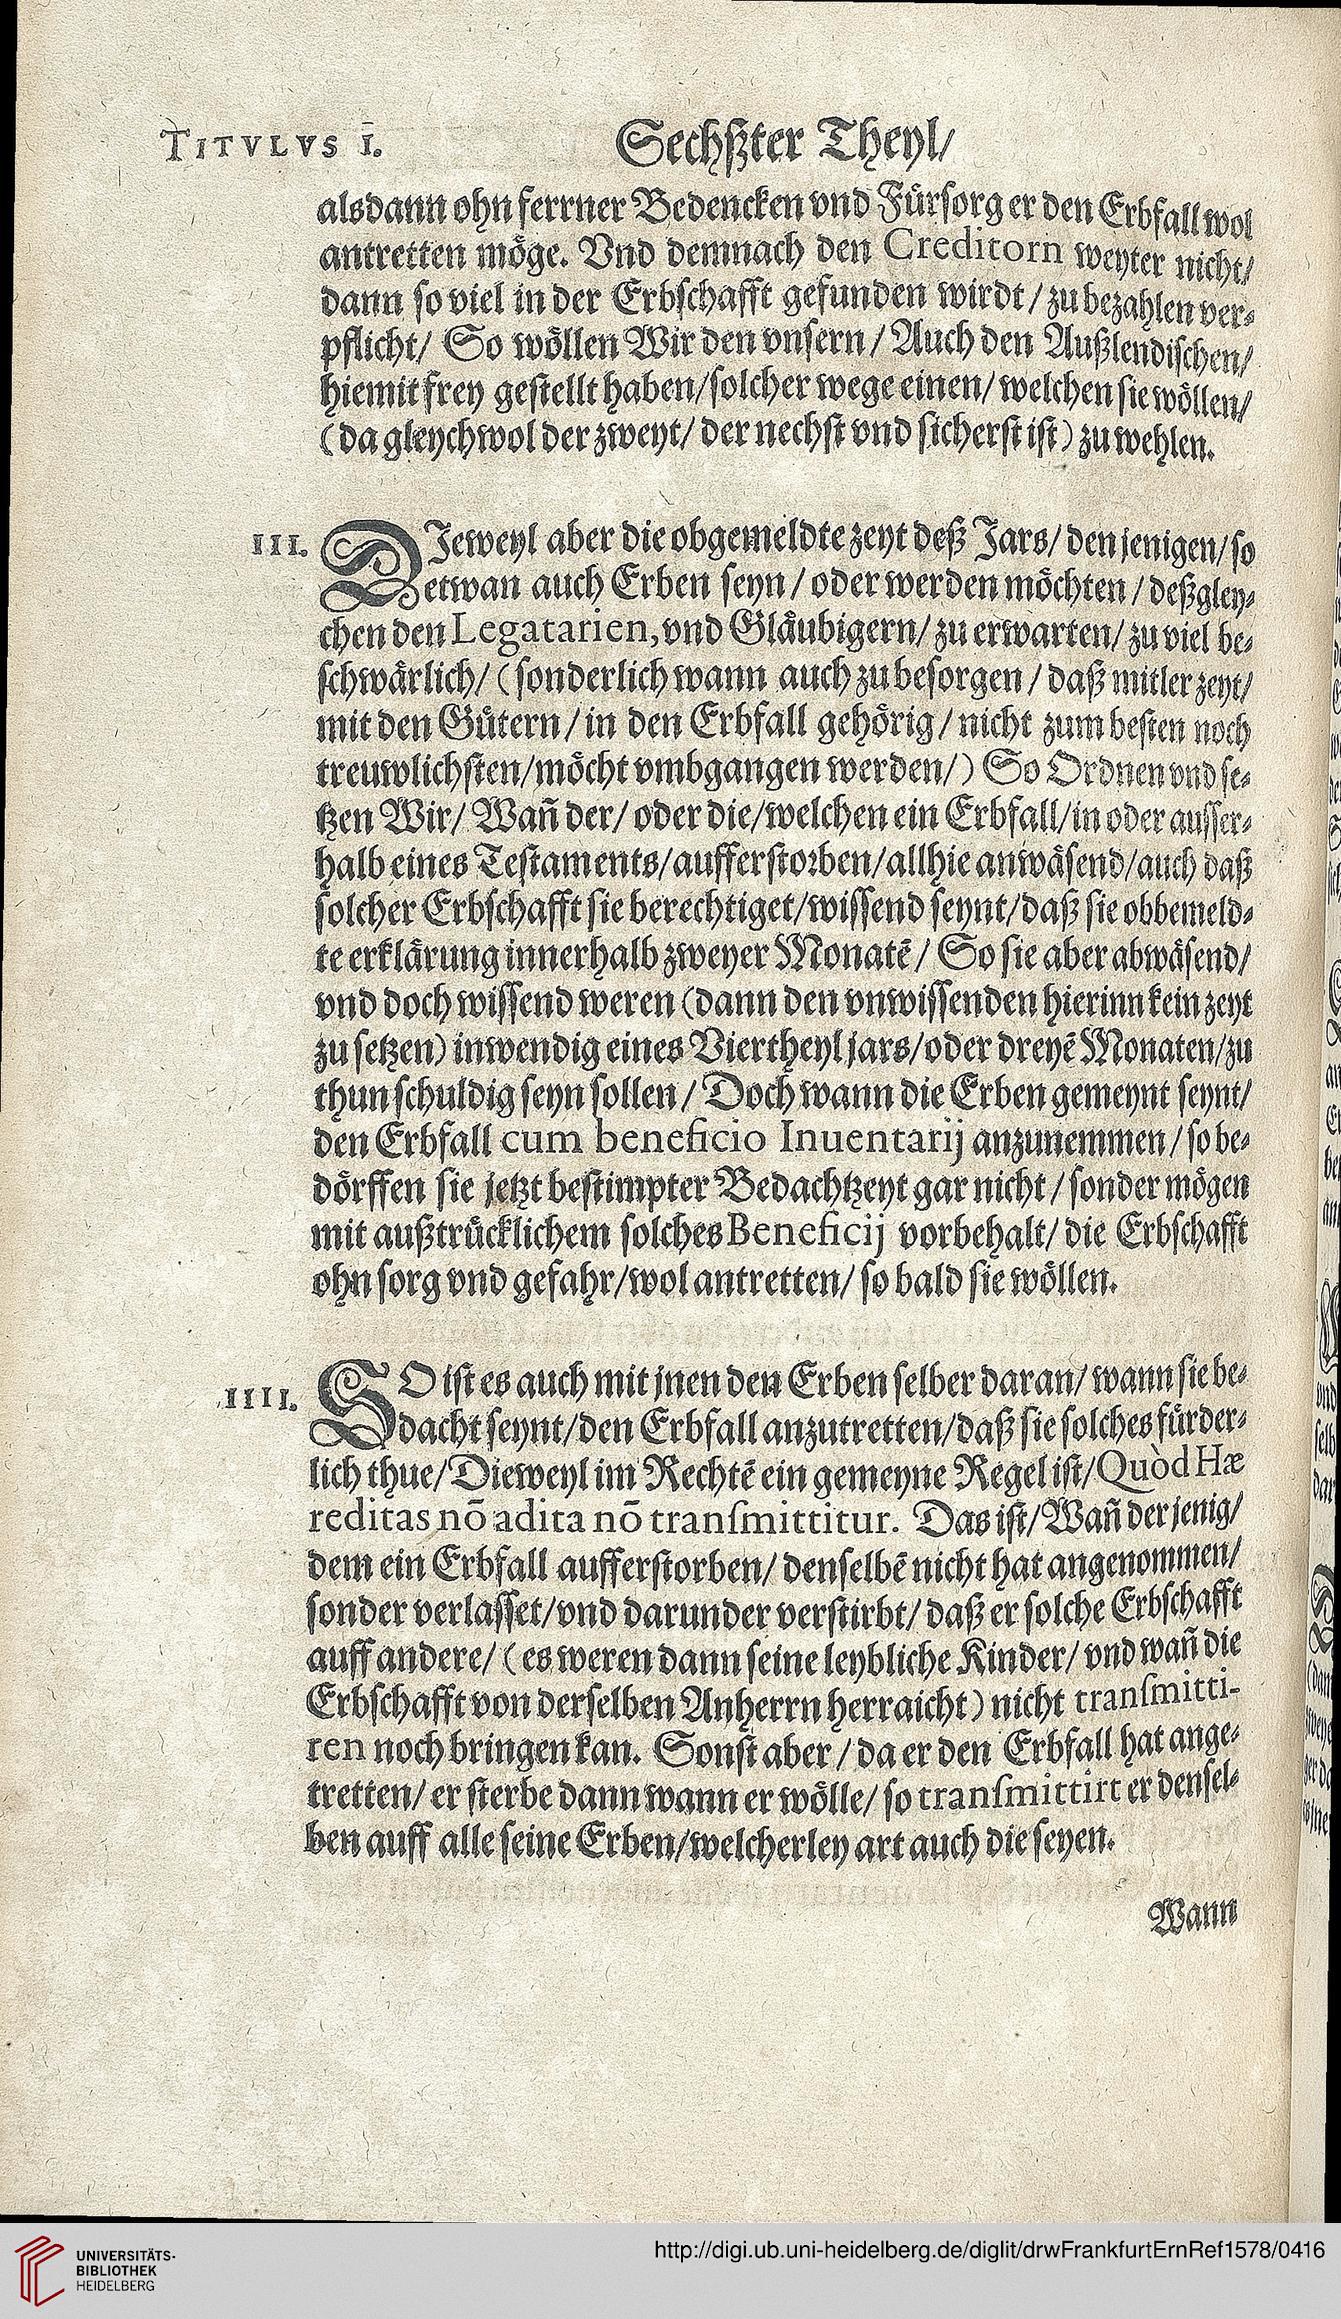 TITVLVS I.
Sechßter Theyl/
alsdann ohn ferrner Bedencken vnd Fürsorg er den Erbfall wol
antretten möge. Vnd demnach den Creditorn weyter nicht/
dann so viel in der Erbschafft gefunden wirdt / zu bezahlen ver-
pflicht/ So wöllen Wir den vnsern / Auch den Außlendischen/
hiemit frey gestellt haben/ solcher wege einen/ welchen sie wöllen/
(da gleychwol der zweyt/ der nechst vnd sicherst ist) zu wehlen.
III. DIeweyl aber die obgemeldte zeyt deß Jars/ den jenigen/ so
etwan auch Erben seyn / oder werden möchten / deßgley-
chen den Legatarien, vnd Gläubigern/ zu erwarten/ zu viel be-
schwärlich/ (sonderlich wann auch zu besorgen / daß mitler zeyt/
mit den Gütern / in den Erbfall gehörig / nicht zum besten noch
treuwlichsten/ möcht vmbgangen werden/) So Ordnen vnd se-
tzen Wir/ Wañ der/ oder die/ welchen ein Erbfall/ in oder ausser-
halb eines Testaments/ aufferstorben/ allhie anwäsend/ auch daß
solcher Erbschafft sie berechtiget/ wissend seynt/ daß sie obbemeld-
te erklärung innerhalb zweyer Monatē / So sie aber abwäsend/
vnd doch wissend weren (dann den vnwissenden hierinn kein zeyt
zu setzen) inwendig eines Viertheyl jars/ oder dreyē Monaten/ zu
thun schuldig seyn sollen / Doch wann die Erben gemeynt seynt/
den Erbfall cum beneficio Inuentarij anzunemmen / so be-
dörffen sie jetzt bestimpter Bedachtzeyt gar nicht / sonder mögen
mit außtrücklichem solches Beneficij vorbehalt/ die Erbschafft
ohn sorg vnd gefahr/ wol antretten/ so bald sie wöllen.
IIII. SO ist es auch mit jnen den Erben selber daran/ wann sie be-
dacht seynt/ den Erbfall anzutretten/ daß sie solches fürder-
lich thue/ Dieweyl im Rechtē ein gemeyne Regel ist/ Quòd Hæ
reditas nō adita nō transmittitur. Das ist/ Wañ der jenig/
dem ein Erbfall aufferstorben/ denselbē nicht hat angenommen/
sonder verlasset/ vnd darunder verstirbt/ daß er solche Erbschafft
auff andere/ (es weren dann seine leybliche Kinder/ vnd wañ die
Erbschafft von derselben Anherrn herraicht) nicht transmitti-
ren noch bringen kan. Sonst aber / da er den Erbfall hat ange-
tretten/ er sterbe dann wann er wölle/ so transmittirt er densel-
ben auff alle seine Erben/ welcherley art auch die seyen.
Wann
UNIVERSITÄTS-
BIBLIOTHEK
HEIDELBERG
http://digi.ub.uni-heidelberg.de/diglit/drwFrankfurtErnRef1578/0416